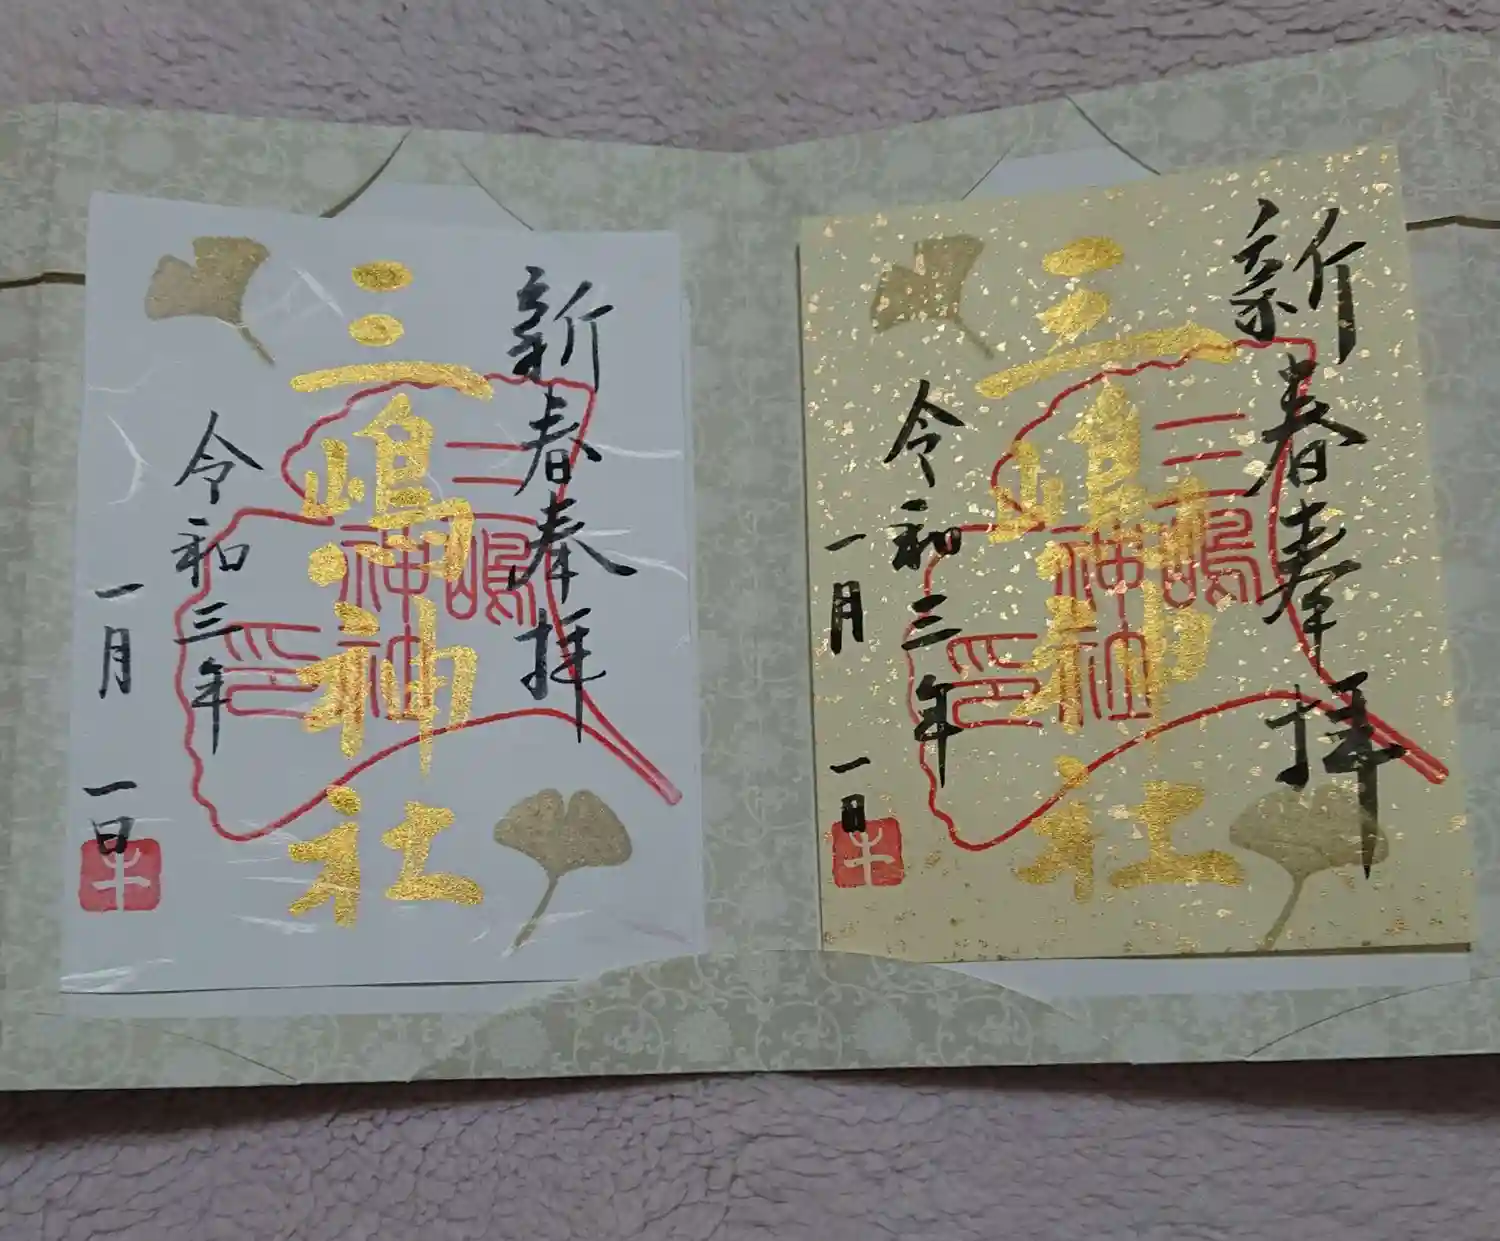 新春奉拝
三嶋神社
三嶋神社印
令和三年
一月一日
牛
新春奉拝
三嶋神社
三嶋神社印
令和三年
一月一日
牛